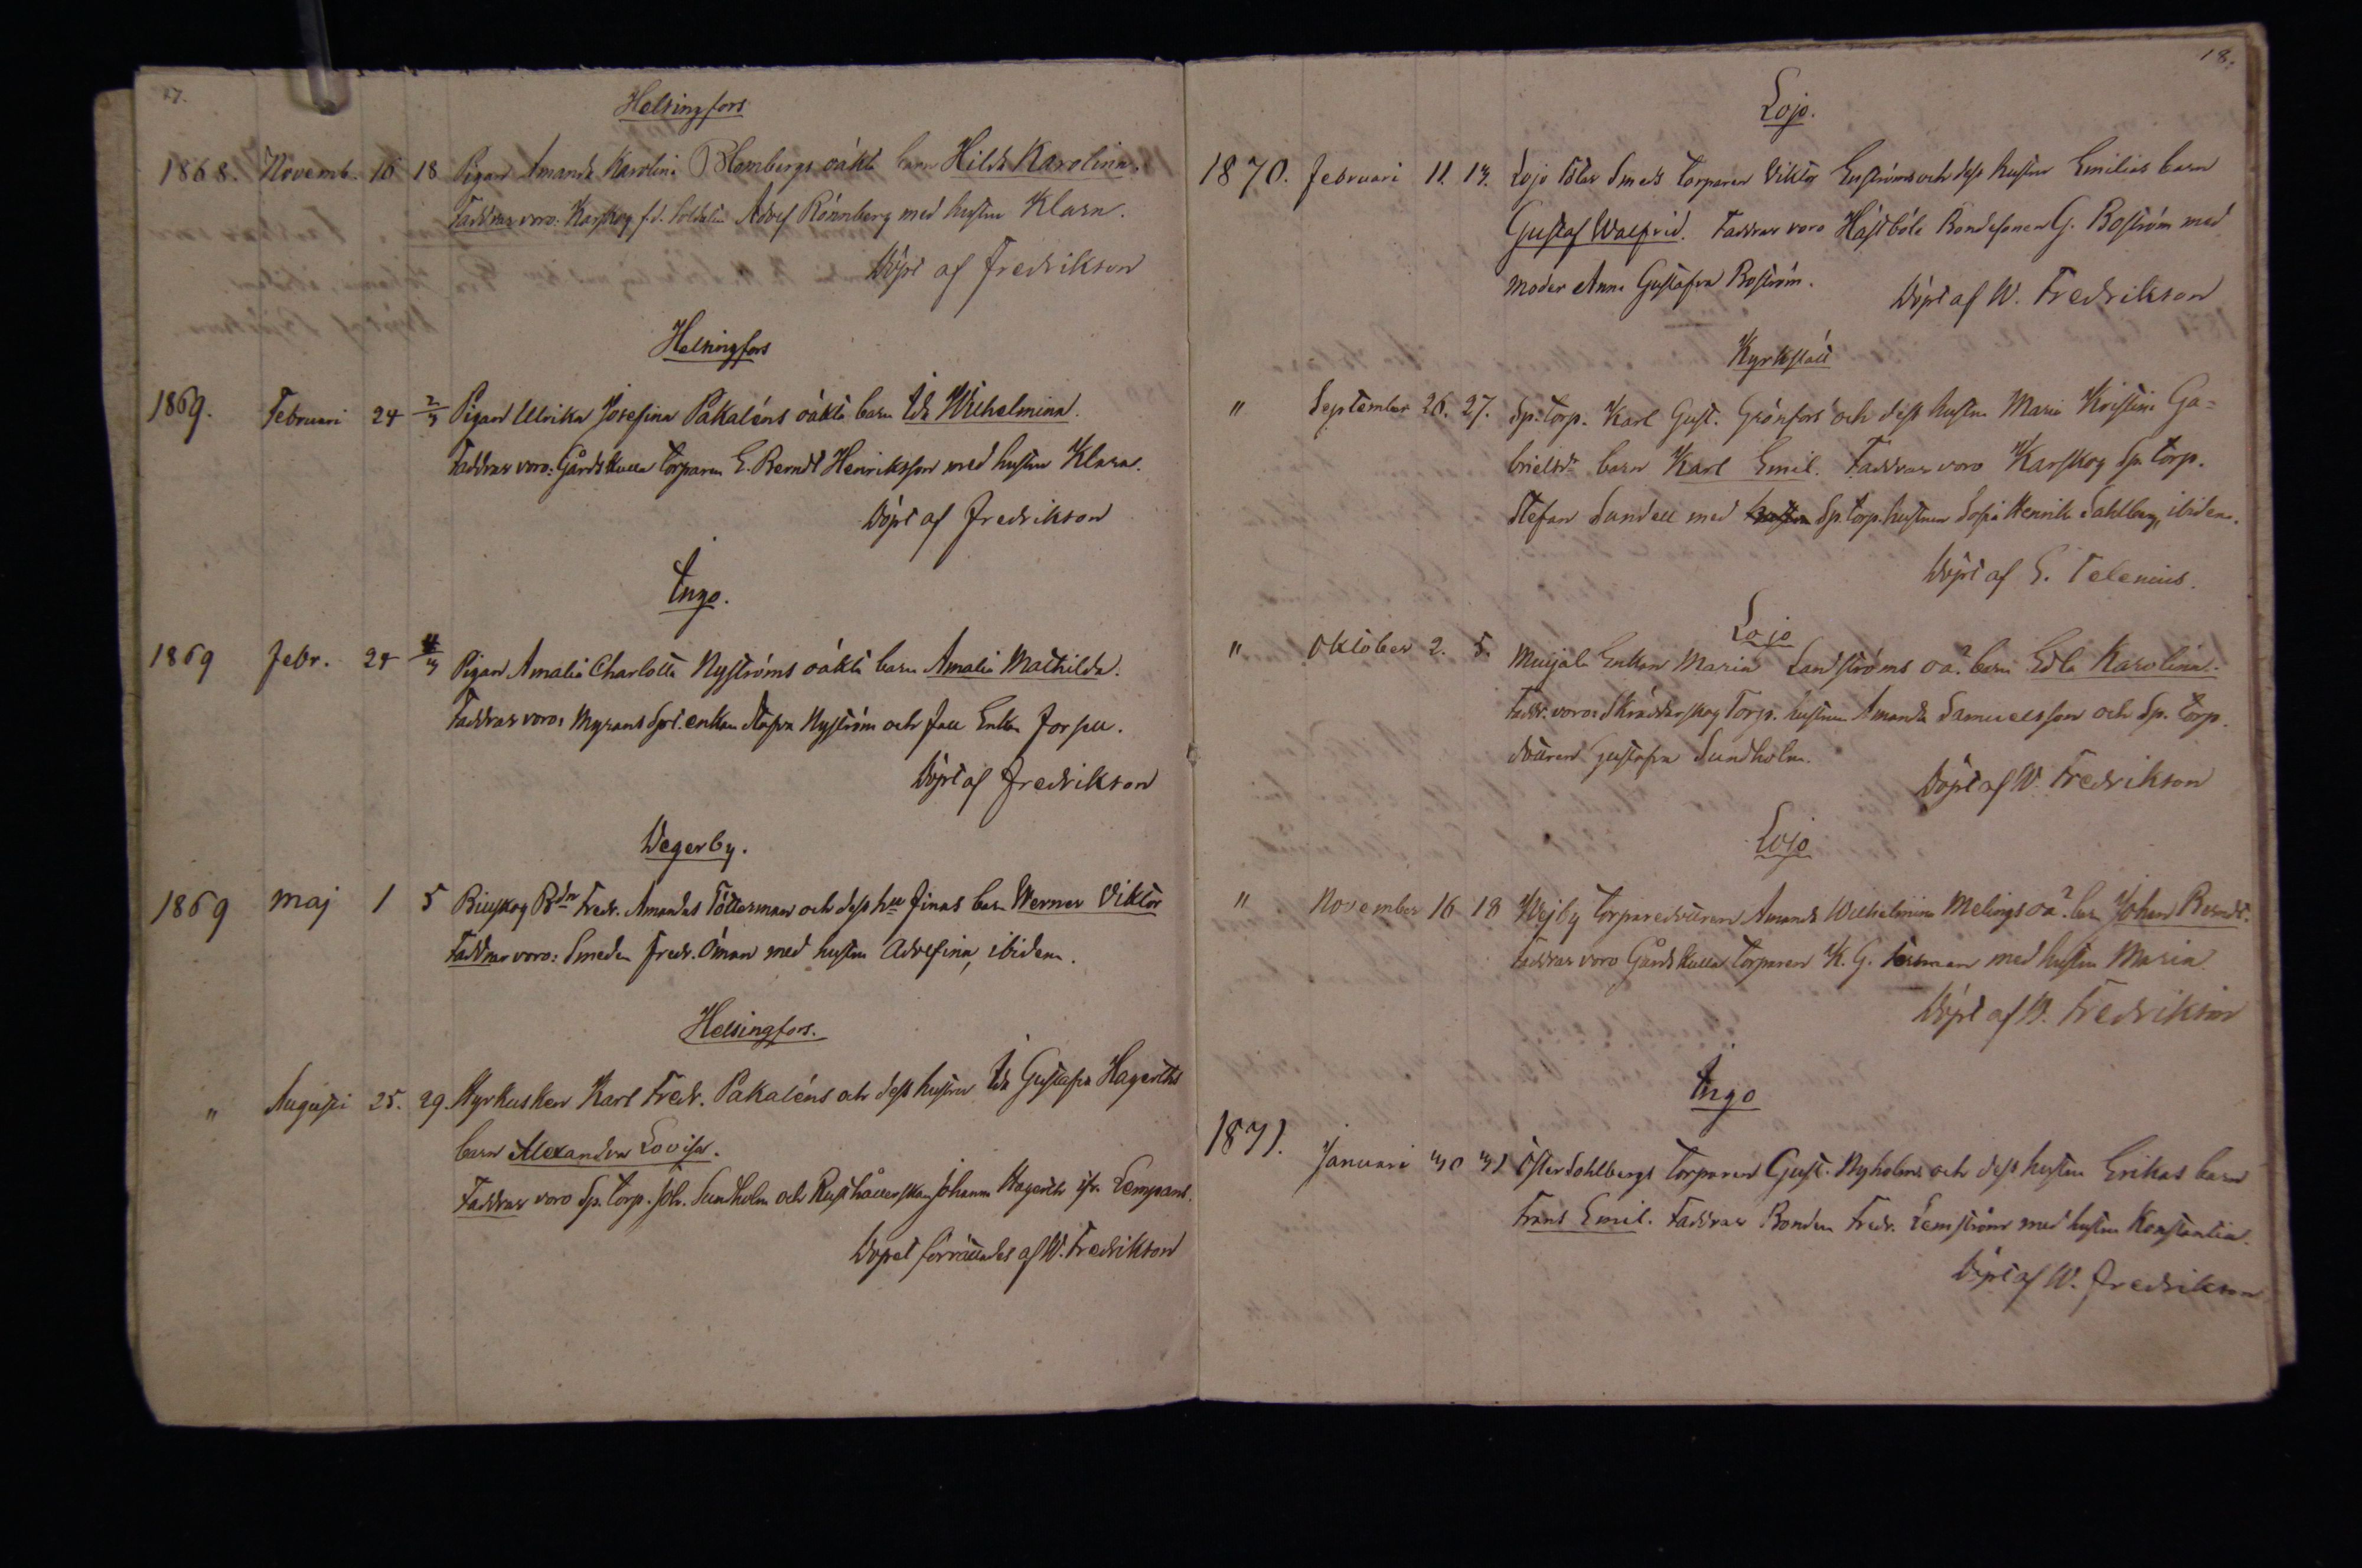 17.
Helsingfors
1868. Novemb. 16 18 Pigan Amanda Karolina Blombergs oäkta barn Hilda Karolina.
Faddrar voro: Karskog f.d. Soldaten Adolf Rönnberg med hustru Klara.
Döpt af Fredrikson
Helsingfors
1869. Februari 24 2/3 Pigan Ulrika Josefina Pakaléns oäkta barn Ida Wilhelmina.
Faddrar voro: Gårdskulla torparen E. Berndt Henriksson med hustru Klara.
Döpt af Fredrikson
Ingo.
1869 Febr. 24 4/3 Pigan Amalia Charlotta Nyströms oäkta barn Amalia Mathilda.
Faddrar voro: Myrans Spt. enkan Stafva Nyström och
Döpt af Fredrikson
Degerby.
1869 Maj 1 5 Billskog Bdn Fredr. Amandus Töttermans och dess hu Finas barn Werner Viktor
Faddrar voro: Smeden Fredr. Öman med hustru Adolfina, ibidem.
Helsingfors.
" Augusti 25. 29. Hyrkusken Karl Fredr. Pakaléns och dess hustru Ida Gustafva Hagerths
barn Alexandra Lovisa.
Faddrar voro Sp. torp. Joh. Sundholm och Rusthållerskan Johanna Hagerth ifr. Lempans.
Dopet förrättades af W. Fredrikson
18.
Lojo.
1870. Februari 11. 13. Lojo Töler Smeds torparen Viktor Enströms och dess hustru Emilias barn
Gustaf Walfrid. Faddrar voro Hästböle Bondesonen G. Boström med
moder Anna Gustafva Boström.
Döpt af W. Fredrikson
Kyrkslätt
" September 26. 27. Sp. torp. Karl Gust. Grönfors och dess hustru Maria Kristina Ga=
brielsd. barn Karl Emil. Faddrar voro Karskog Sp. torp.
Stefan Sundell med Sp. torp. hustrun Sofia Henrika Sahlberg, ibidem.
Döpt af E. Telenius.
Lojo
" Oktober 2. 5. Muijala Enkan Maria Landströms oä. barn Edla Karolina.
Faddr. voro: Skräddarskog Torp. hustrun Amanda Samuelsson och Sp. torp.
dottren Gustafva Sundholm.
Döpt af W. Fredrikson
Lojo
" November 16 18 Wejby torparedottren Amanda Wilhelmina Melings oä. barn Johan Berndt.
Faddrar voro Gårdskulla torparen K. G. Forsman med hustru Maria
Döpt af W. Fredrikson
Ingo
1871. Januari 30 31 Öster Sohlbergs torparen Gust. Nyholms och dess hustru Erikas barn
Frans Emil. Faddrar Bonden Fredr. Lemström med hustru Konstantia.
Döpt af W. Fredrikson